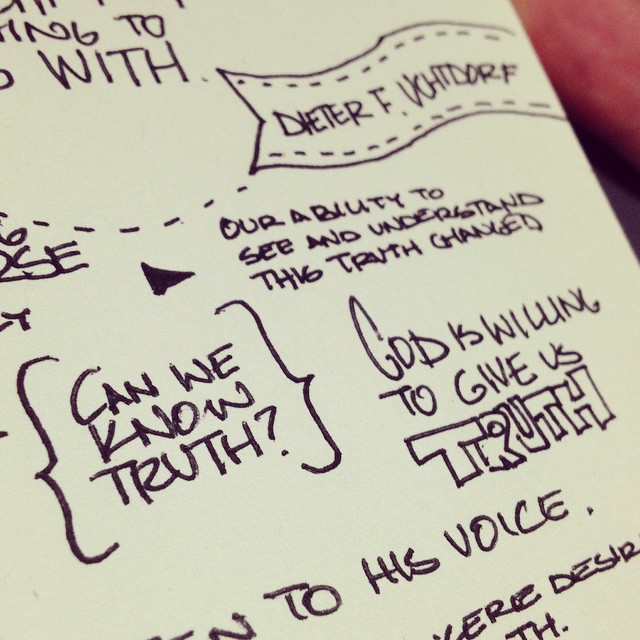 TING TO
WITH.
DIETER F. UCHTDORF
OUR ABILITY TO
SEE AND UNDERSTAND
THIS TRUTH CHANGED
CAN WE
KNOW
TRUTH?
GOD IS WILLING
TO GIVE US
TRUTH
TO HIS VOICE.